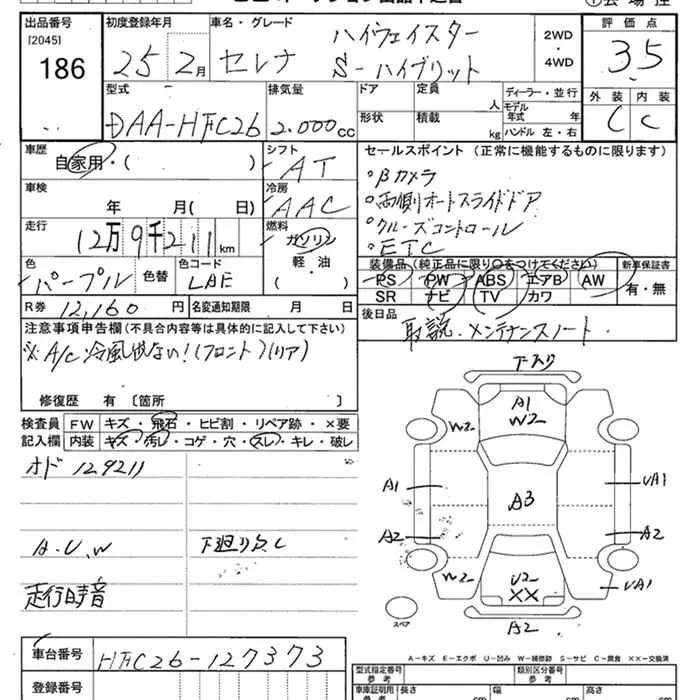 出品番号
[2045]
186
初度登録年月
25 2月
車名・グレード
セレナ
ハイウェイスター
S-ハイブリット
2WD
・
4WD
評価点
3.5
外装 内装
C C
型式
DAA-HFC26
排気量
2.000cc
ドア
形状
定員
人
積載
kg
ディーラー・並行
モデル
年式 年
ハンドル 左・右
車歴
自家用・( )
シフト
AT
セールスポイント (正常に機能するものに限ります)
。Bカメラ
。両側オートスライドドア
。クルーズコントロール
。ETC
車検
年 月( 日)
冷房
AAC
走行
12万9千211km
燃料
ガソリン
軽・油
( )
色
パープル
色替
色コード
LAE
装備品 (純正品に限り○をつけてください)
PS PW ABS エアB AW
SR ナビ TV カワ
新車保証書
有・無
R券 12,160 円
名変通知期限 月 日
後日品
取説、メンテナンスノート.
注意事項申告欄(不具合内容等は具体的に記入して下さい)
※A/C冷風出ない!(フロント)(リア)
修復歴 有 〔箇所 〕
検査員
記入欄
FW キズ・飛石・ヒビ割・リペア跡・×要
内装 キズ・汚レ・コゲ・穴・スレ・キレ・破レ
オド 129211
A.U.W
下廻りC
走行時音
下スリ
A1
W2
W2
W2
A1
UA1
A3
A2
A2
W2
U2
XX
UA1
A2
スペア
A-キズ E-エクボ U-凹み W-補修跡 S-サビ C-腐食 XX-交換済
車台番号
HFC26-127373
登録番号
型式指定番号
参考
類別区分番号
参考
車庫証明用
参考
長さ cm
幅 cm
高さ cm